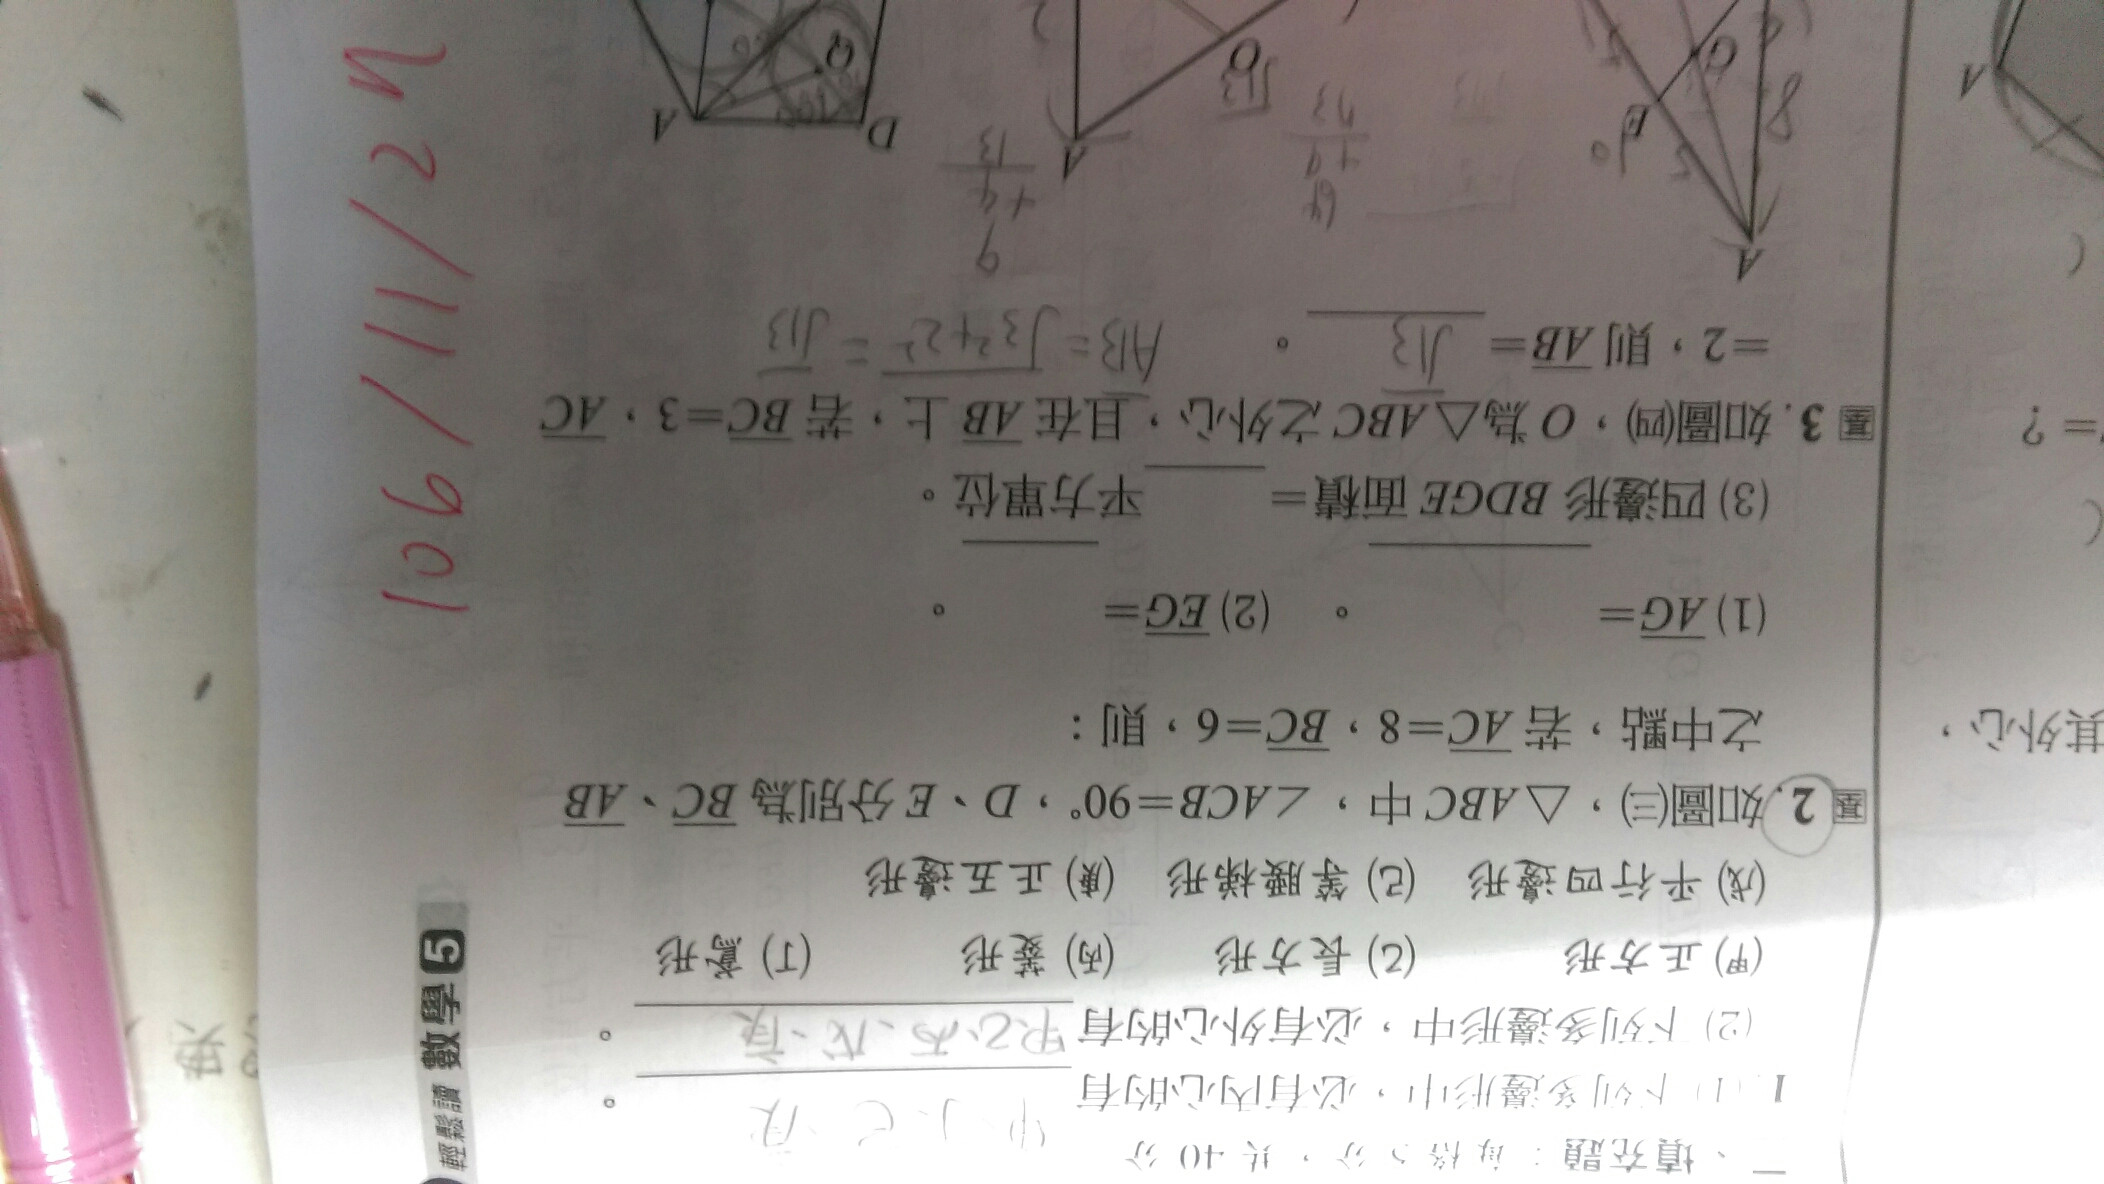 輕鬆讀 數學 5
二、填充題：每格5分，共40分
1. (1) 下列多邊形中，必有內心的有
(2) 下列多邊形中，必有外心的有 甲乙丙、戊、庚。
(甲) 正方形 (乙) 長方形 (丙) 菱形 (丁) 鳶形
(戊) 平行四邊形 (己) 等腰梯形 (庚) 正五邊形
基 2. 如圖(三)，△ABC 中，∠ACB=90°，D、E 分別為 BC、AB
之中點，若 AC=8，BC=6，則：
(1) AG= 。 (2) EG= 。
(3) 四邊形 BDGE 面積= 平方單位。
基 3. 如圖(四)，O 為△ABC 之外心，且在 AB 上，若 BC=3，AC
=2，則 AB= √13 。 AB=√3²+2² = √13
9
+4
13
64
+9
73
√13
A
E
G
8
10
5
A
O
D
A
Q
109/11/24
其外心，
=？
A
英